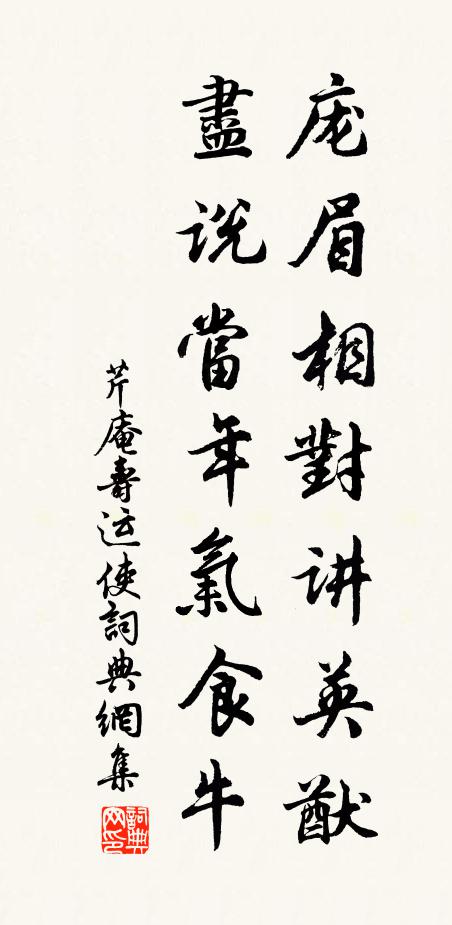 庞眉相對讲英猷
盡説當年氣食牛
芹庵壽运使詞典網集
詞典网印